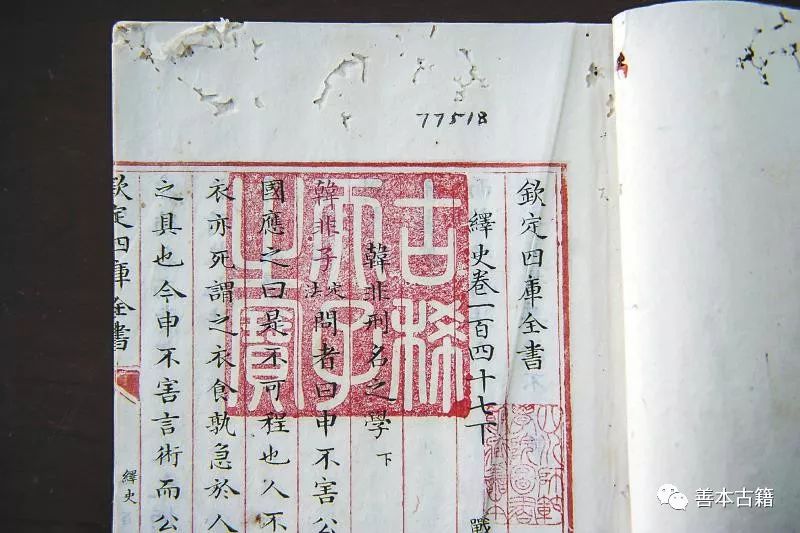 77518
欽定四庫全書
繹史卷一百四十七下
戰
韓非刑名之學下
韓非子定法問者曰申不害公
國應之曰是不可程也人不
衣亦死謂之衣食孰急於人
之具也今申不害言術而公
欽定四庫全書
繹史
古稀天子之寶
善本古籍